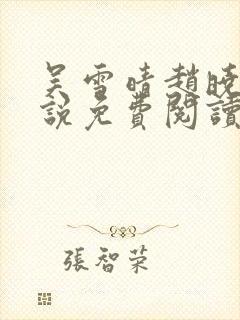 吴雪晴趙曉
說免費閱讀
張智荣